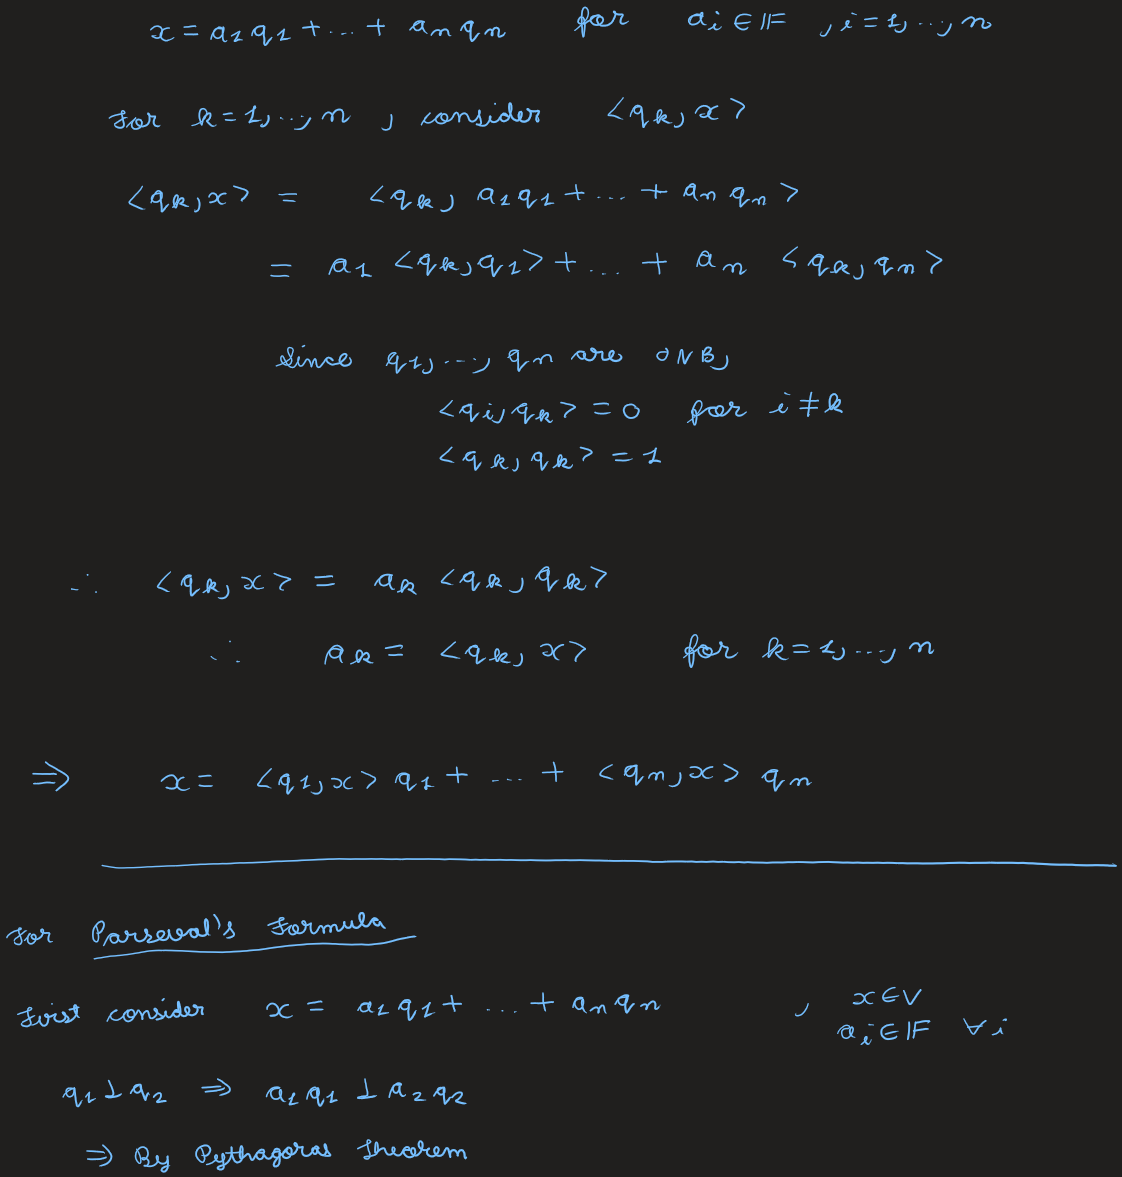 x = a₁q₁ + ... + aₙqₙ for aᵢ ∈ 𝔽 , i = 1, ..., n
For k = 1, ..., n , consider <qₖ, x>
<qₖ, x> = <qₖ, a₁q₁ + ... + aₙqₙ>
= a₁ <qₖ, q₁> + ... + aₙ <qₖ, qₙ>
Since q₁, ..., qₙ are ONB,
<qᵢ, qₖ> = 0 for i ≠ k
<qₖ, qₖ> = 1
∴ <qₖ, x> = aₖ <qₖ, qₖ>
∴ aₖ = <qₖ, x> for k = 1, ..., n
⇒ x = <q₁, x> q₁ + ... + <qₙ, x> qₙ
For Parseval's Formula
First consider x = a₁q₁ + ... + aₙqₙ , x ∈ V
aᵢ ∈ 𝔽 ∀ i
q₁ ⊥ q₂ ⇒ a₁q₁ ⊥ a₂q₂
⇒ By Pythagoras Theorem